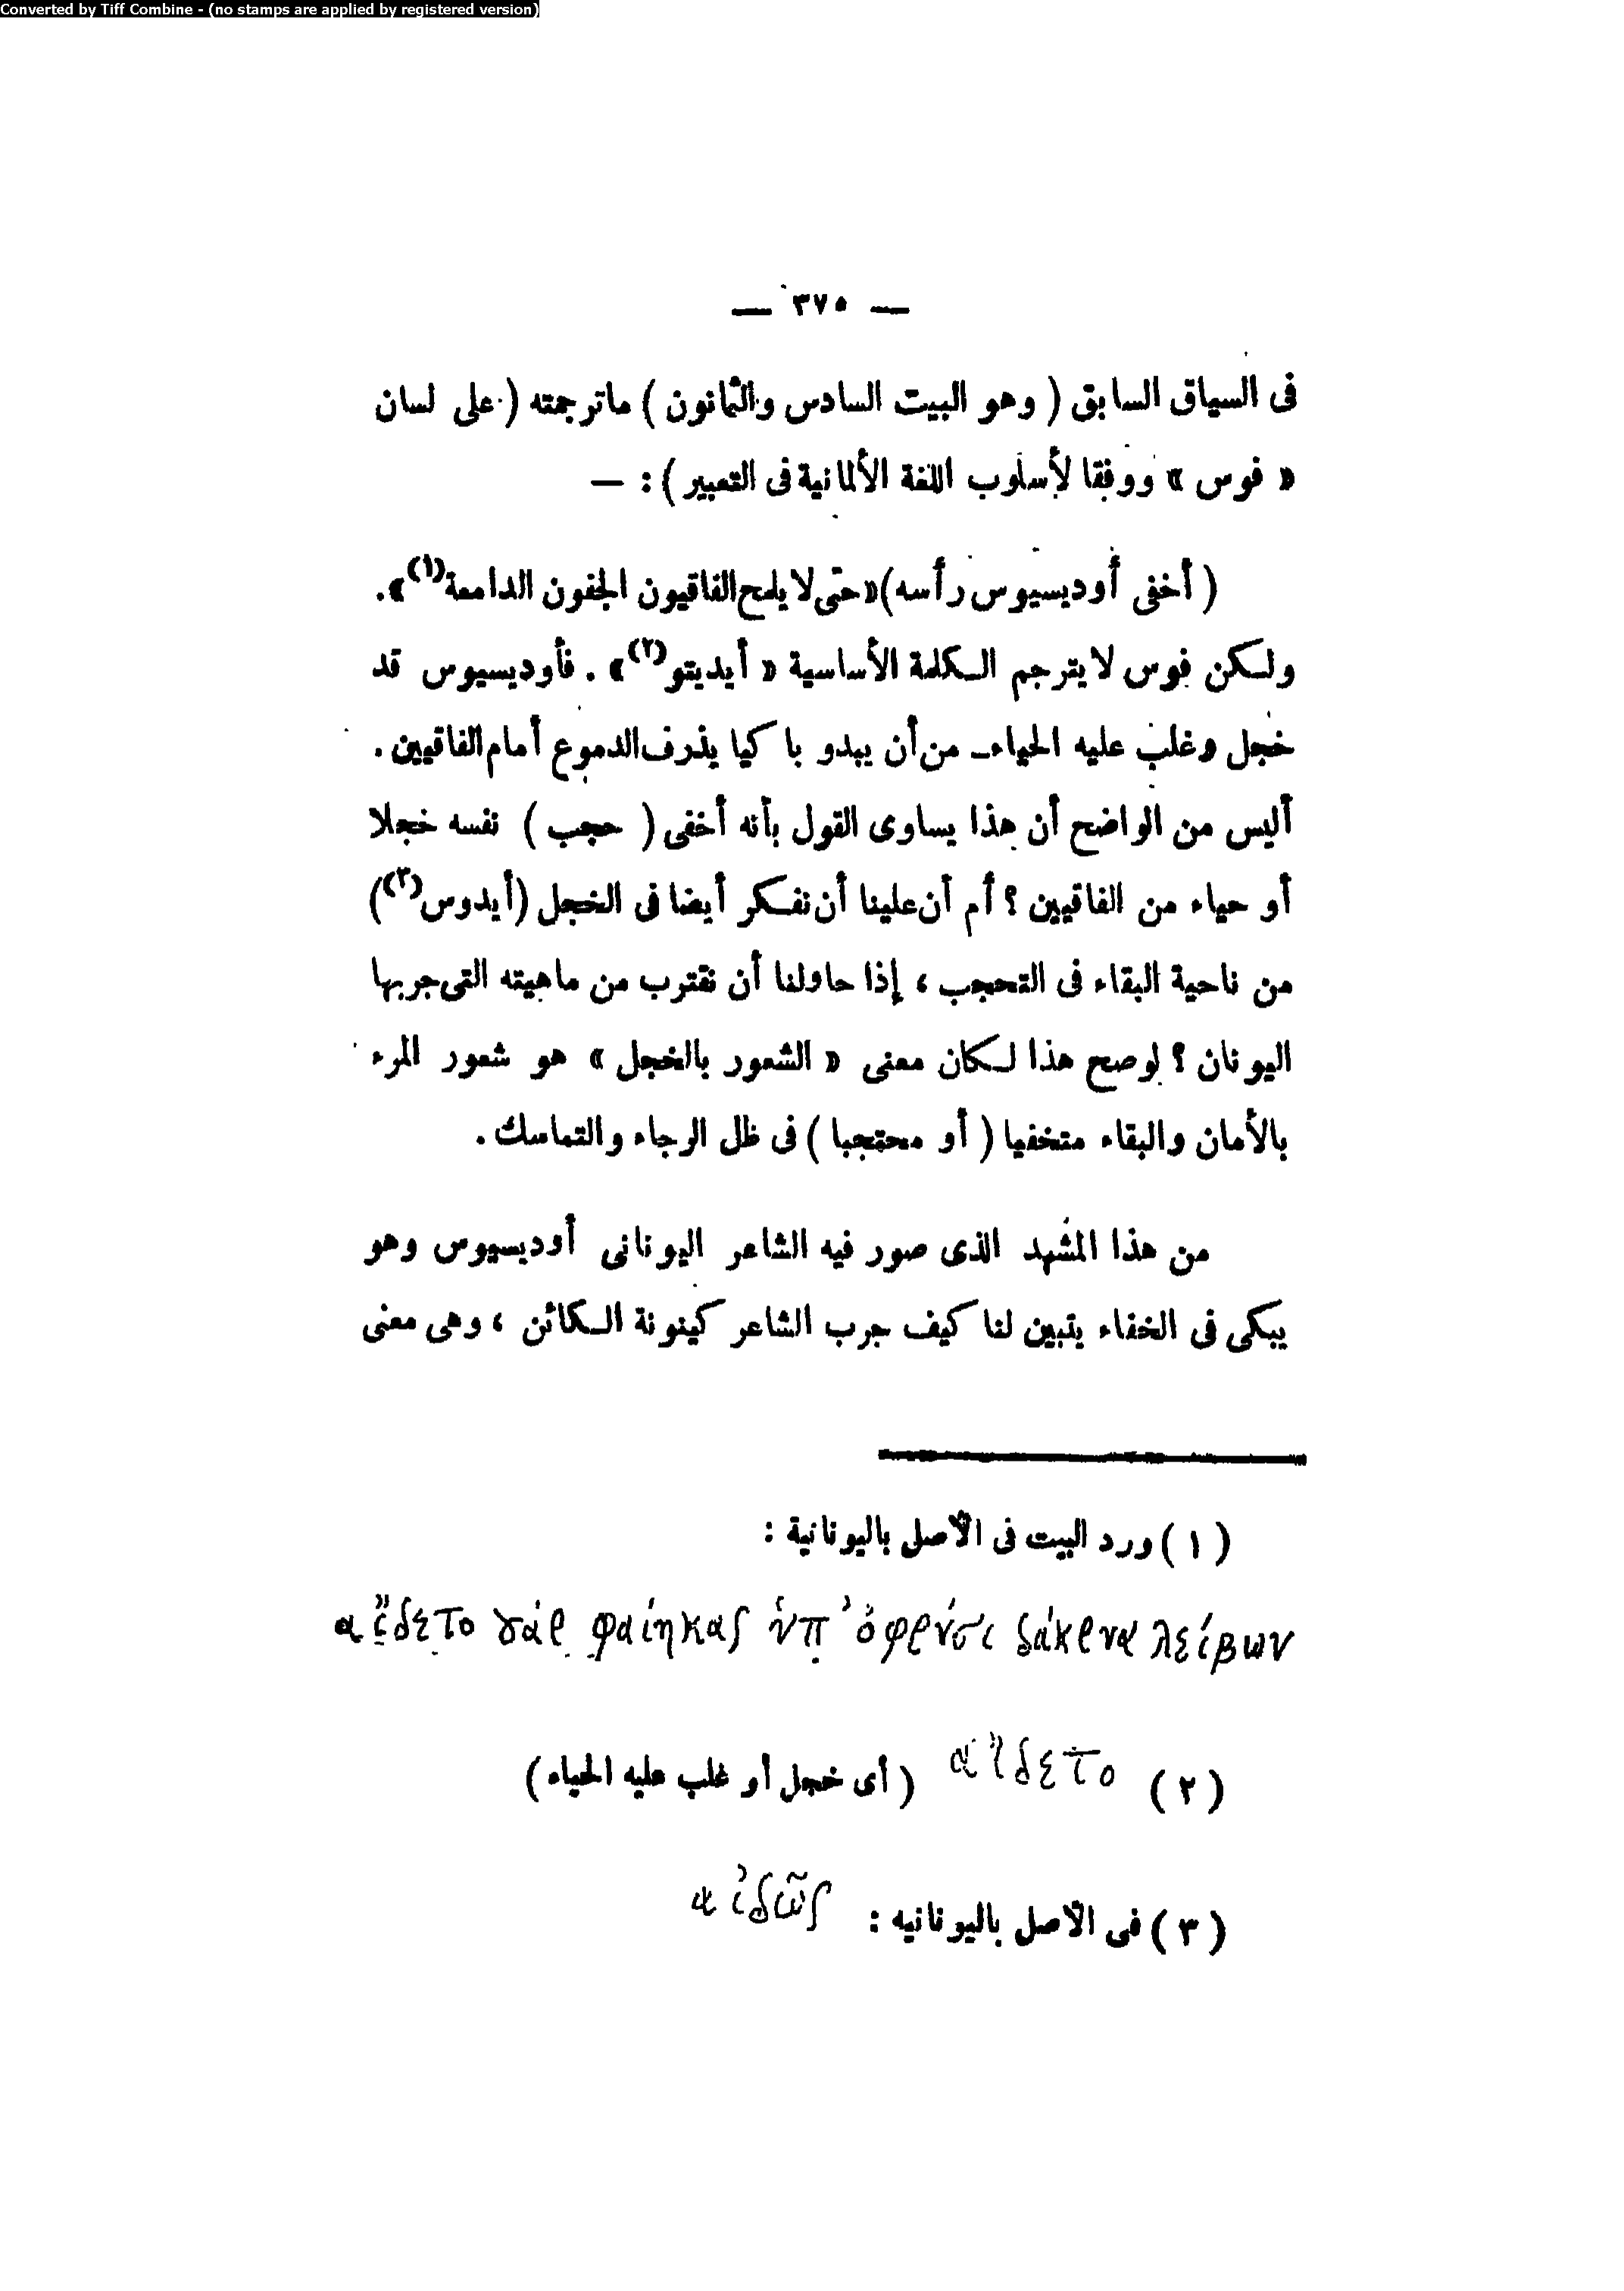 Converted by Tiff Combine - (no stamps are applied by registered version)
— ٣٧٥ —
فى السياق السابق ( وهو البيت السادس والثمانون ) ماترجمته ( على لسان
« فوس » ووفقا لأسلوب اللغة الألمانية فى التعبير ) : —
( أخفى أوديسيوس رأسه ) « حتى لا يلمح الفاقيون الجفون الدامعة(١) » .
ولكن فوس لا يترجم الكلمة الأساسية « أيديتو(٢) » . فأوديسيوس قد
خجل وغلب عليه الحياء ـ من أن يبدو باكيا يذرف الدموع أمام الفاقيين .
أليس من الواضح أن هذا يساوى القول بأنه أخفى ( حجب ) نفسه خجلا
أو حياء من الفاقيين ؟ أم أن علينا أن نفكر أيضا فى الخجل ( أيدوس(٣) )
من ناحية البقاء فى التحجب ، إذا حاولنا أن نقترب من ماهيته التى جربها
اليونان ؟ لو صح هذا لكان معنى « الشعور بالخجل » هو شعور المرء
بالأمان والبقاء متخفيا ( أو محتجبا ) فى ظل الرجاء والتماسك .
من هذا المشهد الذى صور فيه الشاعر اليونانى أوديسيوس وهو
يبكى فى الخفاء يتبين لنا كيف جرب الشاعر كينونة الكائن ، وهى معنى
( ١ ) ورد البيت فى الأصل باليونانية :
αἴδετο γάρ φαίηκας ὑπ' ὀφρύσι δάκρυα λείβων
( ٢ ) αἴδετο ( أى خجل أو غلب عليه الحياء )
( ٣ ) فى الأصل باليونانيه : αἰδῶς